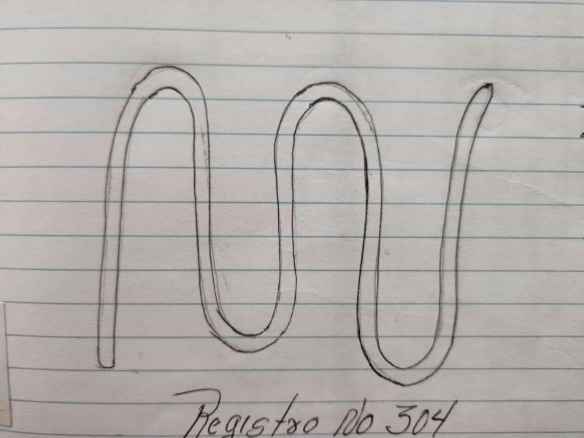 Registro No 304